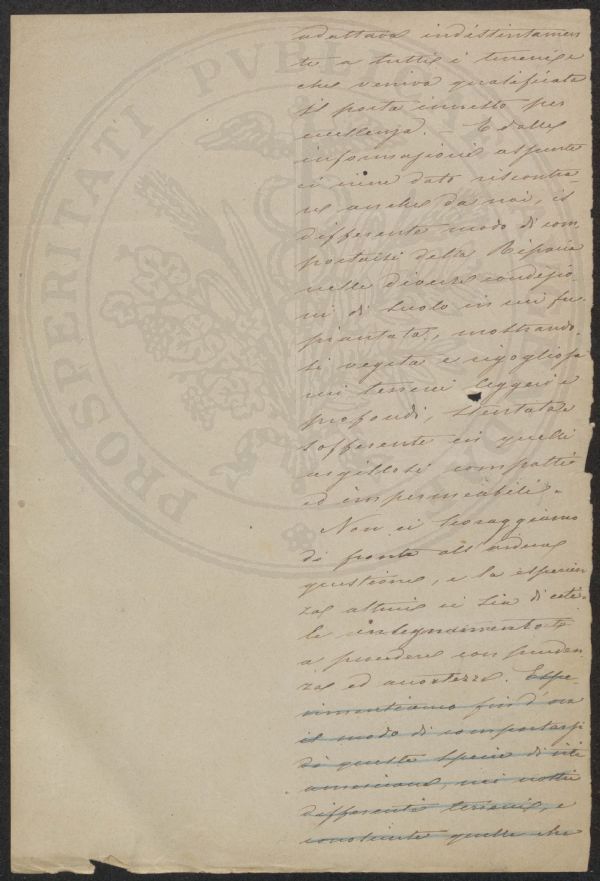 adattava indistintamen
te a tutti i terreni e
che veniva qualificata
il porta innesto per
eccellenza. – E dalle
informazioni assunte
ci viene dato riscontra-
re anche da noi, il
differente modo di com
portarsi della Riparia
nelle diverse condizio-
ni di suolo in cui fu
piantata, mostrando-
si vegeta e rigogliosa
nei terreni leggeri e
profondi, stentata e
sofferente in quelli
argillosi compatti
ed impermeabili.
Non ci scoraggiamo
di fronte all'ardua
questione, e la esperien
za altrui ci sia di
insegnamento
a procedere con pruden
za ed accortezza. Espe-
rimentiamo fin d'ora
il modo di comportarsi
di queste specie di viti
americane, nei nostri
differenti terreni, e
constatate quelle che
PROSPERITATI PVBLICAE